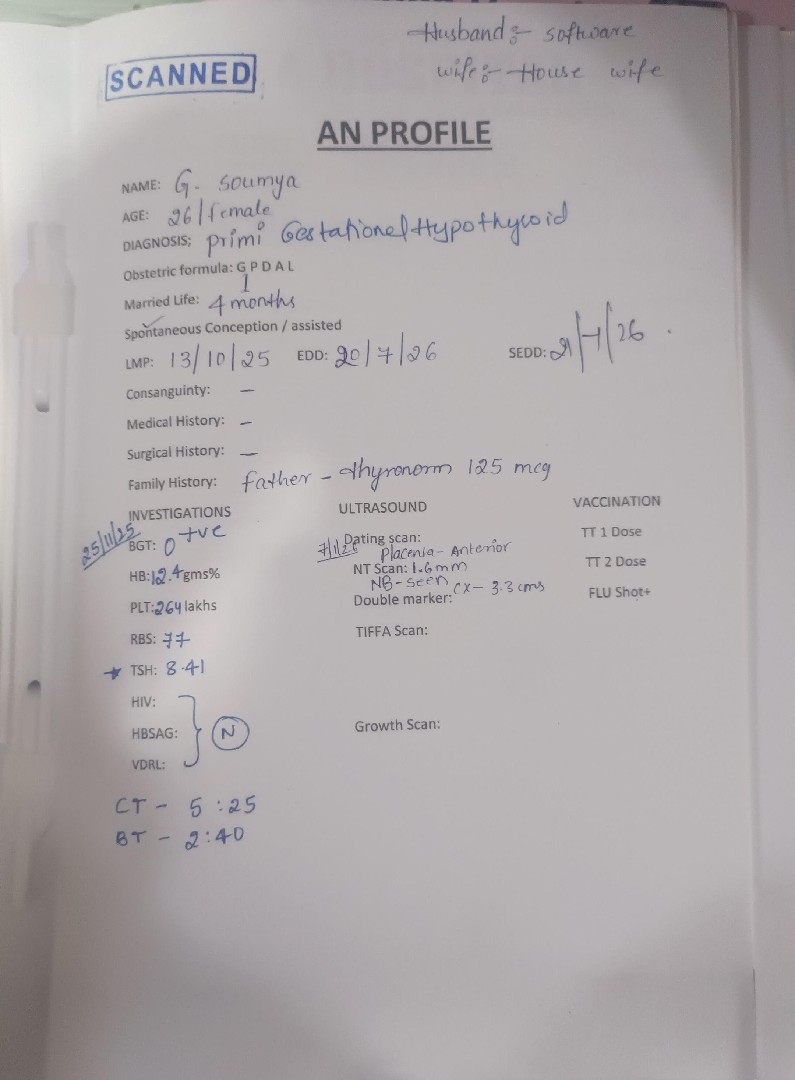 Husband :- software
wife :- House wife
SCANNED
AN PROFILE
NAME: G. Soumya
AGE: 26/female
DIAGNOSIS: primi Gestational Hypothyroid
Obstetric formula: G P D A L
1
Married Life: 4 months
Spontaneous Conception / assisted
LMP: 13/10/25 EDD: 20/7/26 SEDD: 21/7/26.
Consanguinty: –
Medical History: –
Surgical History: –
Family History: father – thyronorm 125 mcg
INVESTIGATIONS
25/11/25
BGT: O +ve
HB: 12.4 gms%
PLT: 264 lakhs
RBS: 77
★ TSH: 8.41
HIV:
HBSAG:
VDRL:
N
CT – 5:25
BT – 2:40
ULTRASOUND
Dating scan:
7/1/26 Placenta – Anterior
NT Scan: 1.6mm
NB – seen CX – 3.3 cms
Double marker:
TIFFA Scan:
Growth Scan:
VACCINATION
TT 1 Dose
TT 2 Dose
FLU Shot+